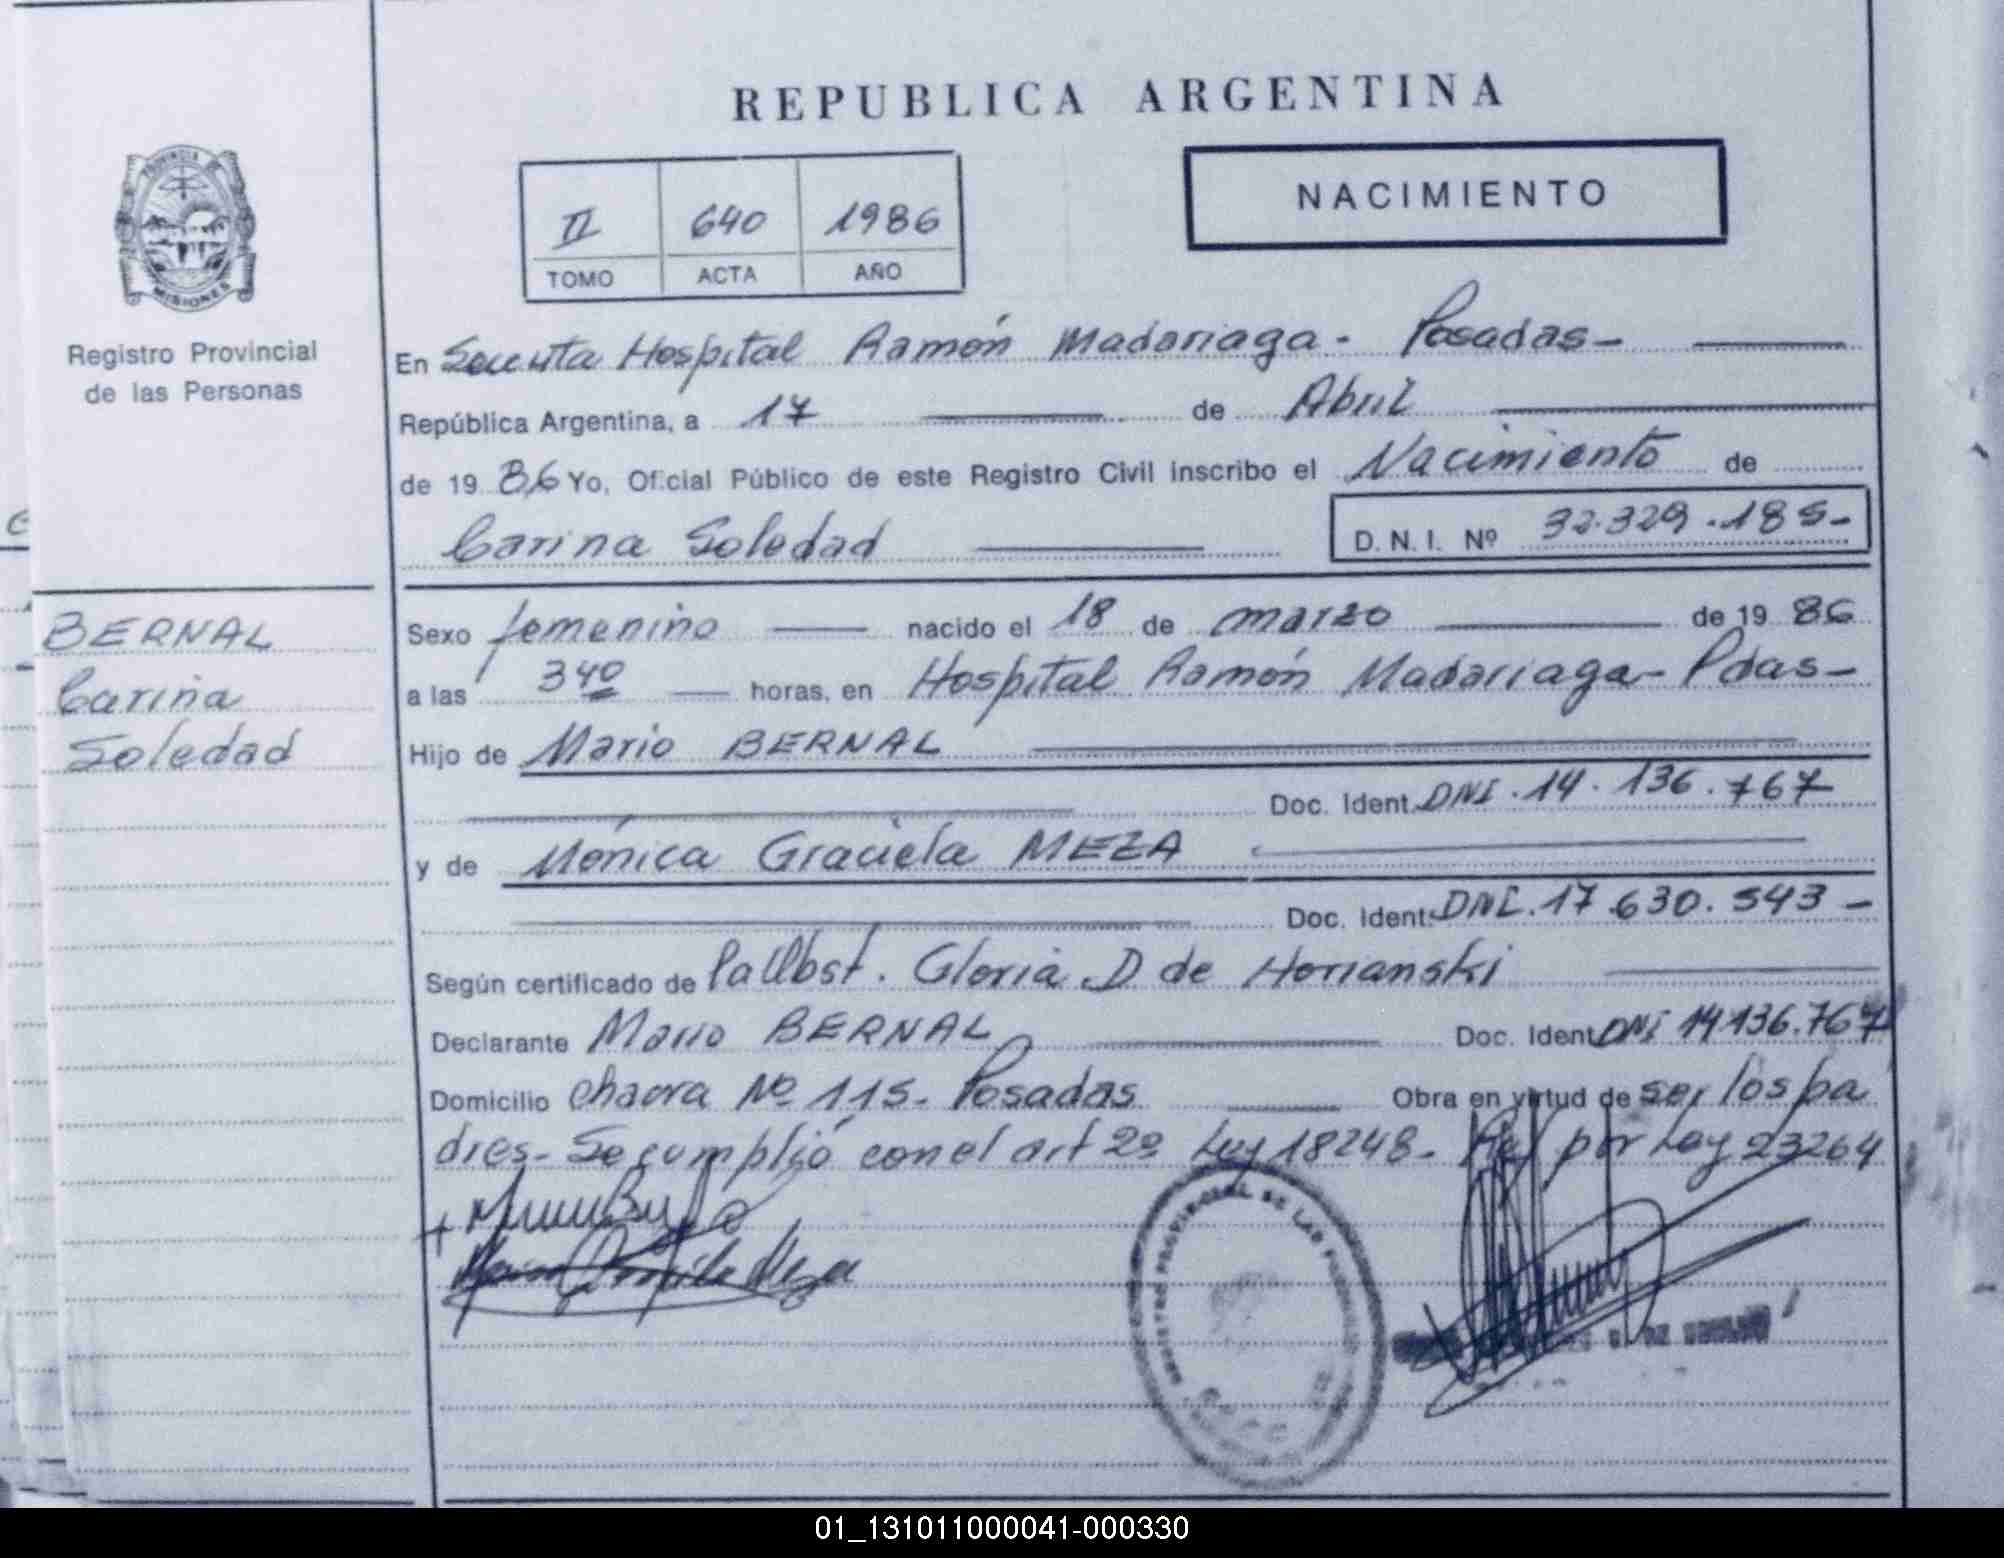 REPUBLICA ARGENTINA
NACIMIENTO
II 640 1986
TOMO ACTA AÑO
PROVINCIA
MISIONES
Registro Provincial
de las Personas
En Hospital Ramón Madariaga - Posadas -
República Argentina, a 17 de Abril
de 1986 Yo, Oficial Público de este Registro Civil inscribo el Nacimiento de
Carina Soledad D.N.I. Nº 32.329.185-
BERNAL
Carina
Soledad
Sexo femenino nacido el 18 de marzo de 1986
a las 3 40 horas, en Hospital Ramón Madariaga - Pdas -
Hijo de Mario BERNAL
Doc. Ident. DNI. 14.136.767
y de Mónica Graciela MEZA
Doc. Ident. DNI. 17.630.543 -
Según certificado de Gloria D de Horianski
Declarante Mario BERNAL Doc. Ident. DNI 14.136.767
Domicilio chacra Nº 115. Posadas Obra en virtud de ser los pa
dres - Se cumplió con el art 2º Ley 18248 - por Ley 23264
REGISTRO PROVINCIAL DE LAS PERSONAS
01_131011000041-000330